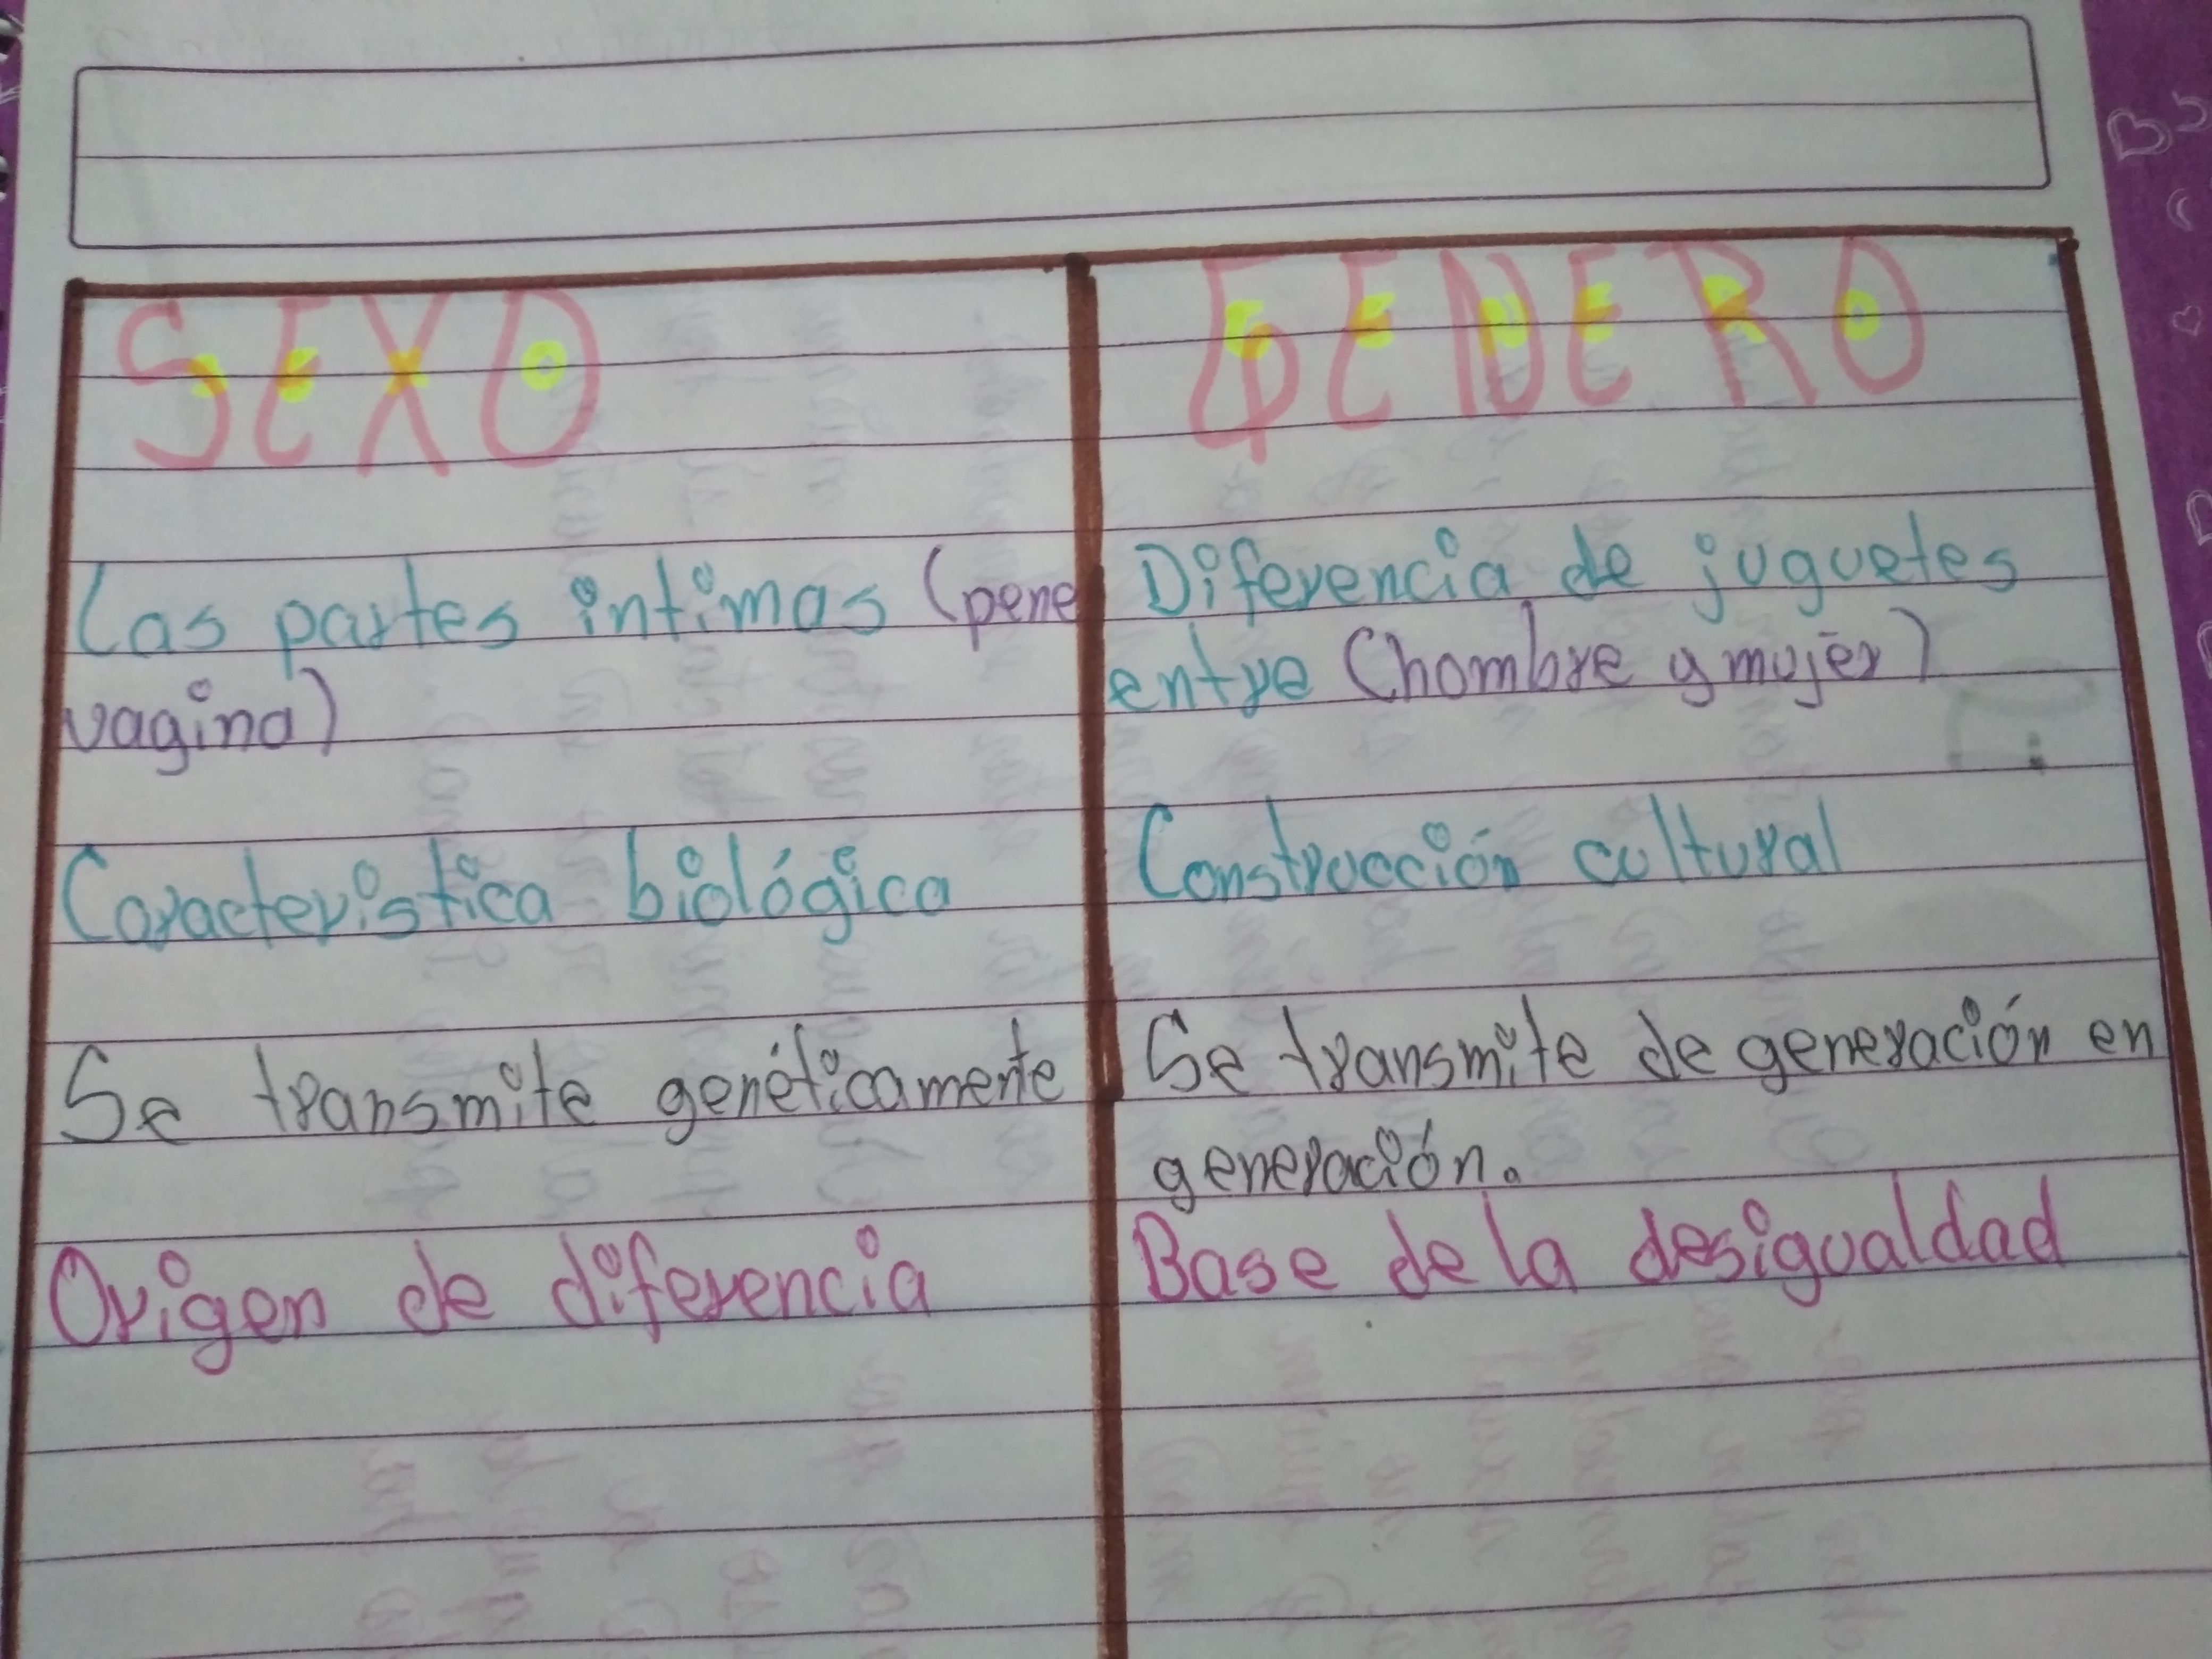 SEXO
Las partes intimas (pene
vagina)
Caracteristica biológica
Se transmite genéticamente
Origen de diferencia
GENERO
Diferencia de juguetes
entre (hombre y mujer)
Construcción cultural
Se transmite de generación en
generación.
Base de la desigualdad